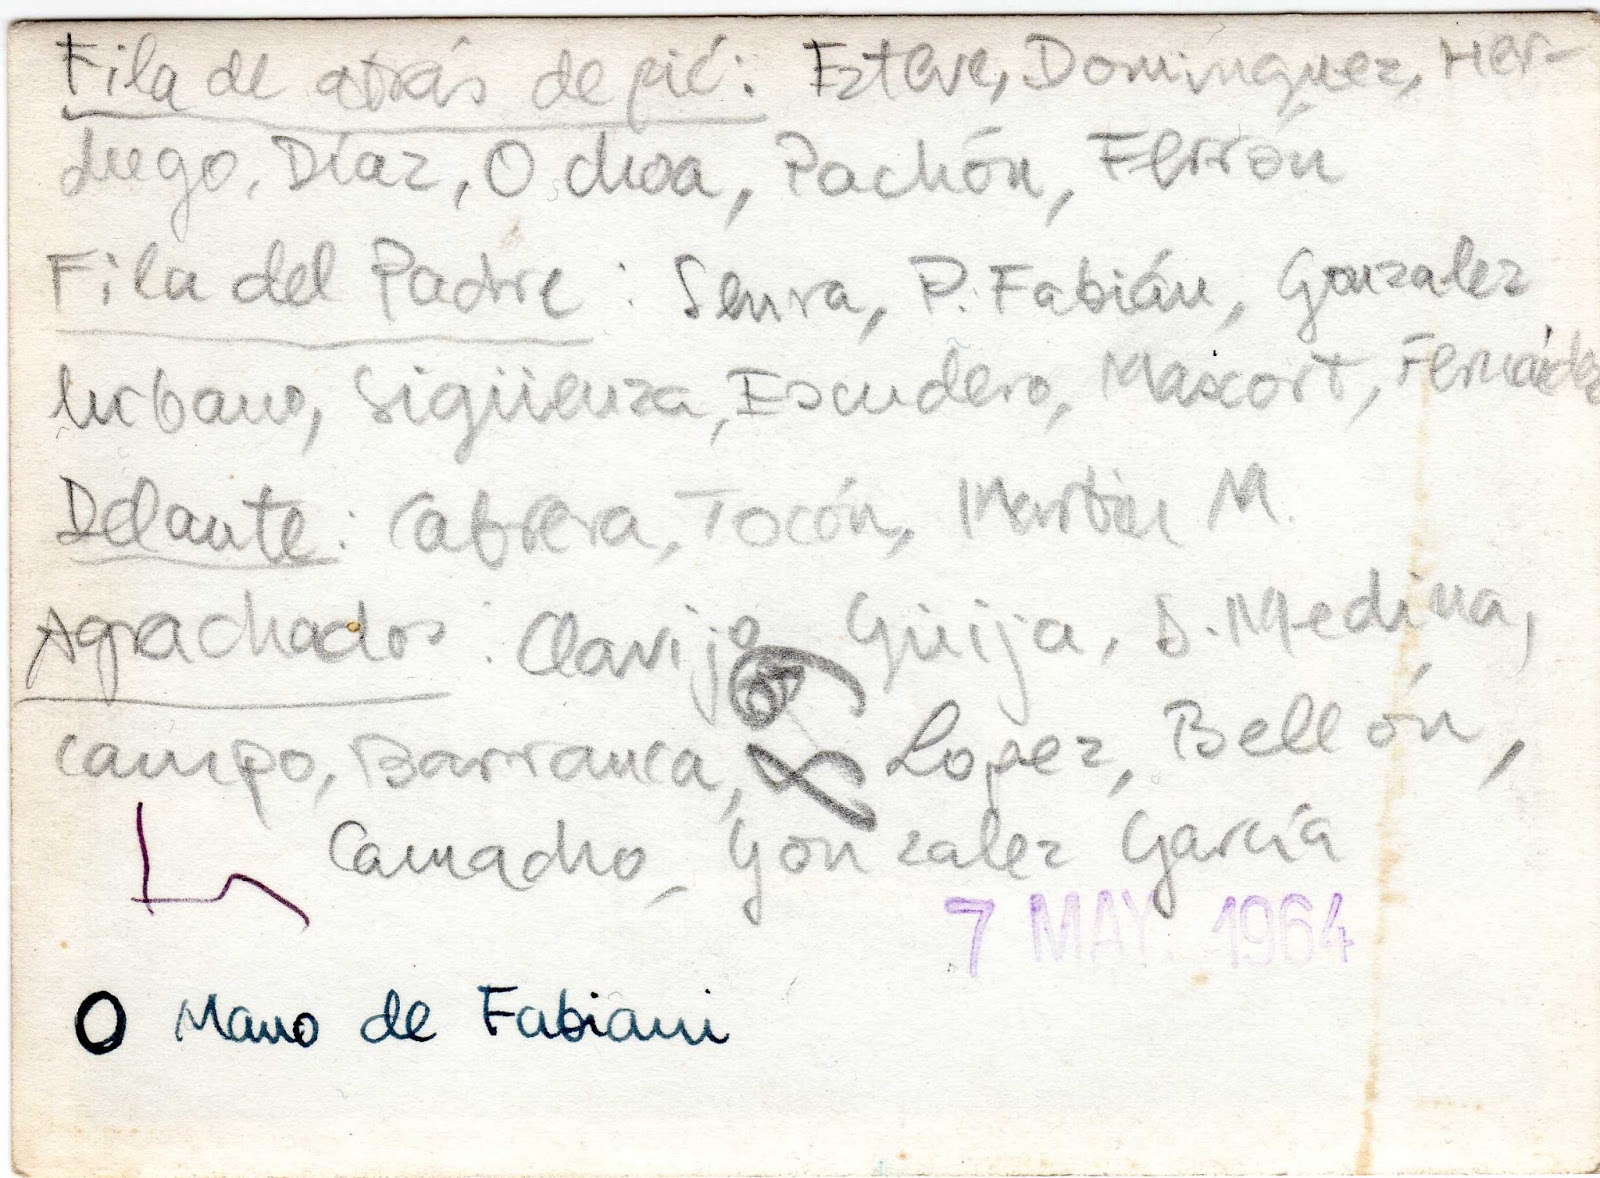 Fila de atrás de pié: Esteve, Dominguez, Her-
dugo, Díaz, Ochoa, Pachón, Ferrón
Fila del Padre: Senra, P. Fabián, Gonzalez
Urbano, Sigüenza, Escudero, Mascort, Fernández
Delante: Cabrera, Tocón, Martin M.
Agachados: Clavijo, Güija, S. Medina,
Campo, Barranca, Lopez, Bellón,
Camacho, Gonzalez García
7 MAY. 1964
O Mano de Fabiani